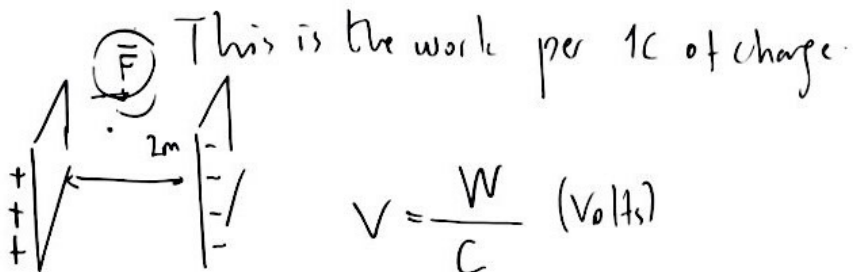 This is the work per 1C of charge.
F̅
2m
+ -
+ -
+ -
-
V = W / C (Volts)